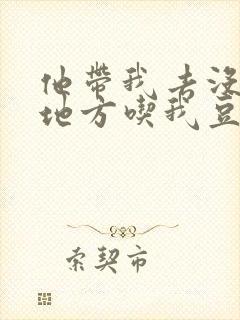 他带我去没
地方喫我豆
索契市